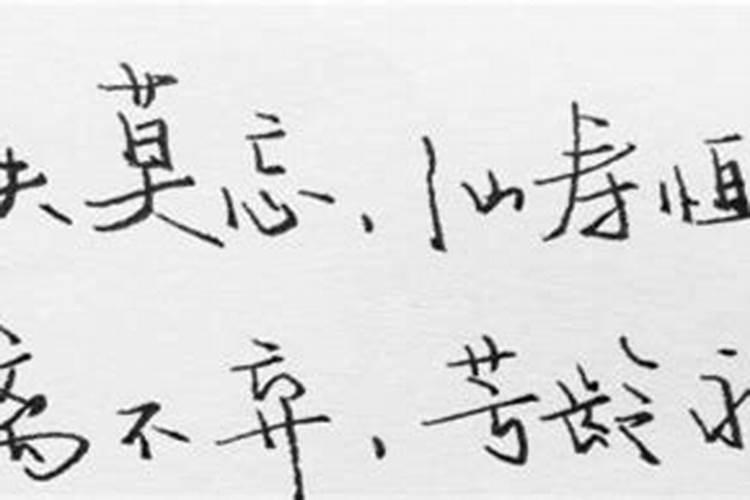 失莫忘，仙寿恒
离不弃，芳龄永